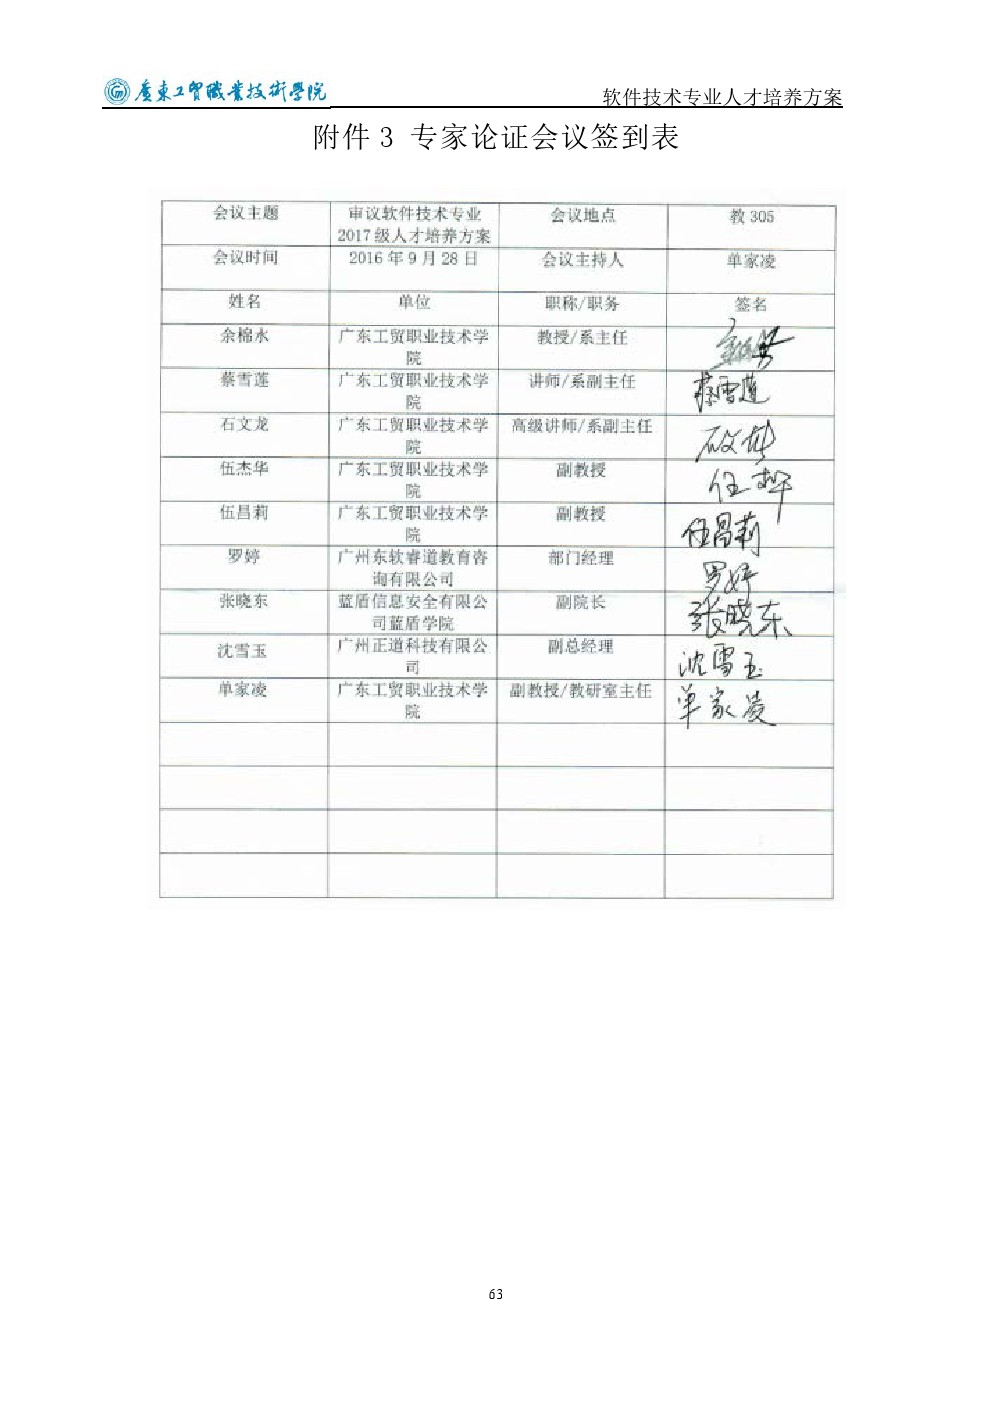 廣東工貿職業技術學院
软件技术专业人才培养方案
附件 3 专家论证会议签到表
会议主题 审议软件技术专业 会议地点 教 305
2017 级人才培养方案
会议时间 2016 年 9 月 28 日 会议主持人 单家凌
姓名 单位 职称/职务 签名
余棉水 广东工贸职业技术学 教授/系主任
院
蔡雪莲 广东工贸职业技术学 讲师/系副主任 蔡雪莲
院
石文龙 广东工贸职业技术学 高级讲师/系副主任
院
伍杰华 广东工贸职业技术学 副教授
院
伍昌莉 广东工贸职业技术学 副教授 伍昌莉
院
罗婷 广州东软睿道教育咨 部门经理 罗婷
询有限公司
张晓东 蓝盾信息安全有限公 副院长 张晓东
司蓝盾学院
沈雪玉 广州正道科技有限公 副总经理 沈雪玉
司
单家凌 广东工贸职业技术学 副教授/教研室主任 单家凌
院
63